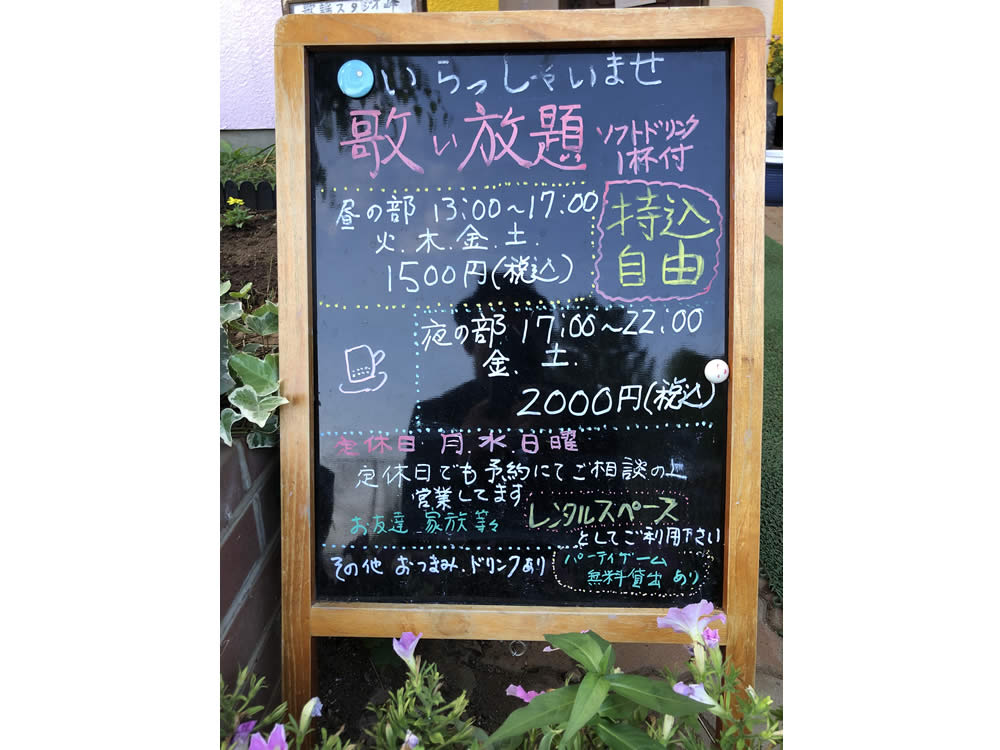 歌謡スタジオ峰
いらっしゃいませ
歌い放題 ソフトドリンク
1杯付
昼の部 13:00~17:00
火.木.金.土.
1500円(税込)
持込
自由
夜の部 17:00~22:00
金. 土.
2000円(税込)
定休日 月.水.日曜
定休日でも予約にてご相談の上
営業してます
お友達 家族等々
レンタルスペース
としてご利用下さい
その他 おつまみ.ドリンクあり
パーティゲーム
無料貸出 あり